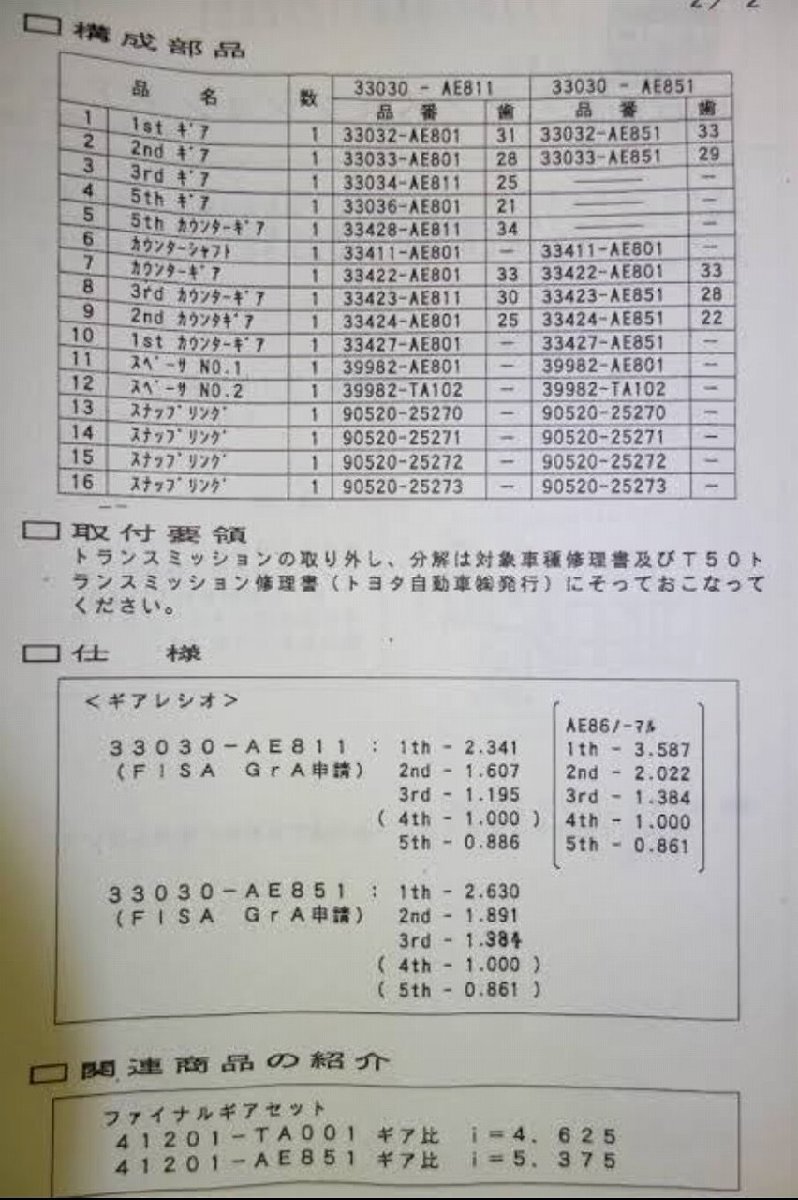 □ 構成部品
品 名 数 33030 - AE811 33030 - AE851
品 番 歯 品 番 歯
1 1st ｷﾞｱ 1 33032-AE801 31 33032-AE851 33
2 2nd ｷﾞｱ 1 33033-AE801 28 33033-AE851 29
3 3rd ｷﾞｱ 1 33034-AE811 25 ——— —
4 5th ｷﾞｱ 1 33036-AE801 21 ——— —
5 5th ｶｳﾝﾀｰｷﾞｱ 1 33428-AE811 34 ——— —
6 ｶｳﾝﾀｰｼｬﾌﾄ 1 33411-AE801 — 33411-AE801 —
7 ｶｳﾝﾀｰｷﾞｱ 1 33422-AE801 33 33422-AE801 33
8 3rd ｶｳﾝﾀｰｷﾞｱ 1 33423-AE811 30 33423-AE851 28
9 2nd ｶｳﾝﾀｷﾞｱ 1 33424-AE801 25 33424-AE851 22
10 1st ｶｳﾝﾀｰｷﾞｱ 1 33427-AE801 — 33427-AE851 —
11 ｽﾍﾟｰｻ NO.1 1 39982-AE801 — 39982-AE801 —
12 ｽﾍﾟｰｻ NO.2 1 39982-TA102 — 39982-TA102 —
13 ｽﾅｯﾌﾟﾘﾝｸﾞ 1 90520-25270 — 90520-25270 —
14 ｽﾅｯﾌﾟﾘﾝｸﾞ 1 90520-25271 — 90520-25271 —
15 ｽﾅｯﾌﾟﾘﾝｸﾞ 1 90520-25272 — 90520-25272 —
16 ｽﾅｯﾌﾟﾘﾝｸﾞ 1 90520-25273 — 90520-25273 —
□ 取付要領
トランスミッションの取り外し、分解は対象車種修理書及びＴ５０ト
ランスミッション修理書（トヨタ自動車㈱発行）にそっておこなって
ください。
□ 仕 様
＜ギアレシオ＞
３３０３０－ＡＥ８１１ : 1th - 2.341
(ＦＩＳＡ ＧｒＡ申請) 2nd - 1.607
3rd - 1.195
( 4th - 1.000 )
5th - 0.886
AE86ﾉｰﾏﾙ
1th - 3.587
2nd - 2.022
3rd - 1.384
4th - 1.000
5th - 0.861
３３０３０－ＡＥ８５１ : 1th - 2.630
(ＦＩＳＡ ＧｒＡ申請) 2nd - 1.891
3rd - 1.384
( 4th - 1.000 )
( 5th - 0.861 )
□ 関連商品の紹介
ファイナルギアセット
４１２０１－ＴＡ００１ ギア比 ｉ＝４．６２５
４１２０１－ＡＥ８５１ ギア比 ｉ＝５．３７５